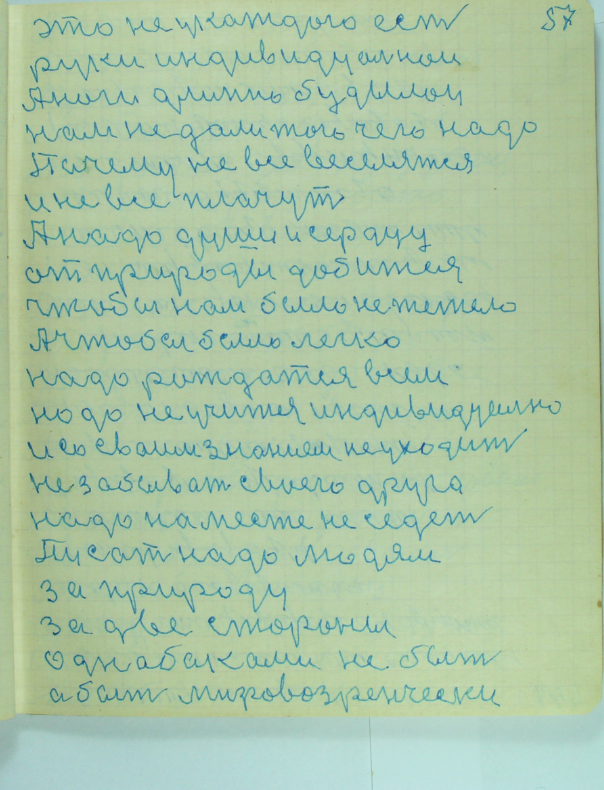 57
это не укаждого ест
руки индивидуалнои
А ноги длинь будылои
нам недали того чего надо
Пачему не все веселятся
и не все плачут
А надо души и сердцу
от природы добится
чтобы нам было не тежело
А чтобы было легко
надо рождатся всем
надо не учится индивидуално
и со сваим знанием не уходит
не забыват своего друга
надо на месте не седет
Писат надо людям
за природу
за две стороны
однабаками не быт
а быт мировозренчески